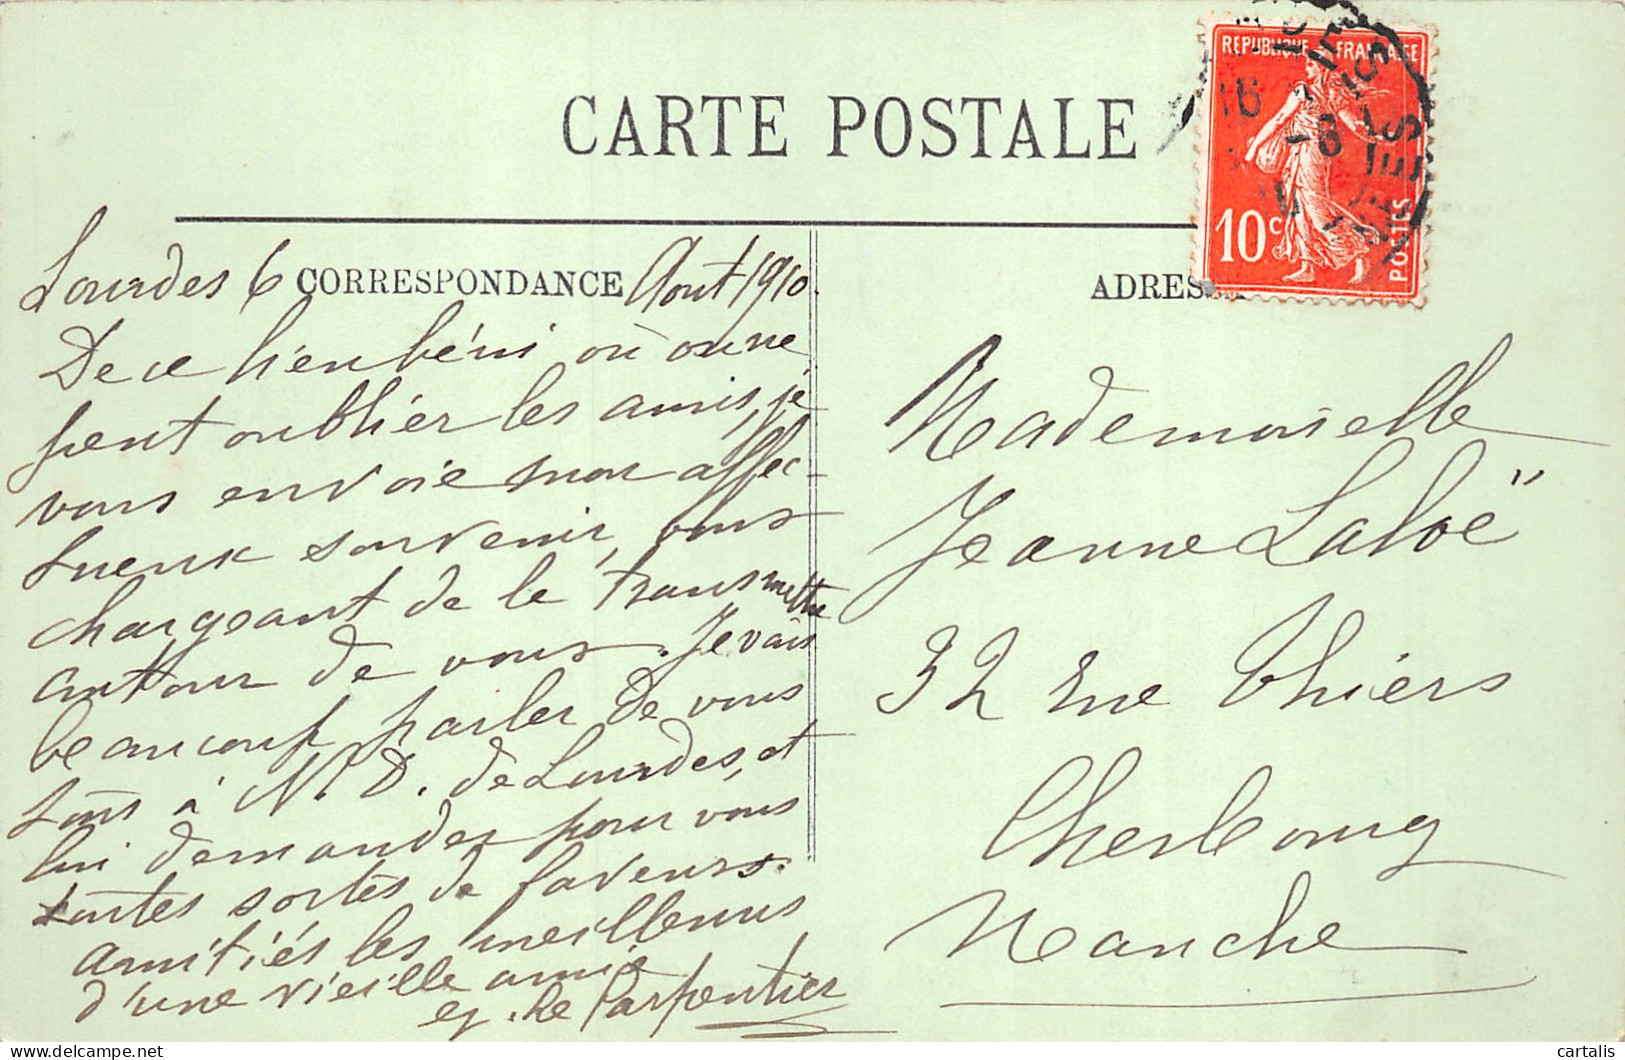 CARTE POSTALE
REPUBLIQUE FRANÇAISE
10c
POSTES
CORRESPONDANCE
ADRESSE
Lourdes 6 Aout 1910.
De ce lieu béni où on ne
peut oublier les amis, je
vous envoie mon affec-
tueux souvenir, vous
chargeant de le transmettre
autour de vous. Je vais
beaucoup parler de vous
tous à N. D. de Lourdes, et
lui demander pour vous
toutes sortes de faveurs.
Amitiés les meilleures
d'une vieille amie
Le Carpentier
Mademoiselle
Jeanne Laloë
32 rue Thiers
Cherbourg
Manche
cartalis